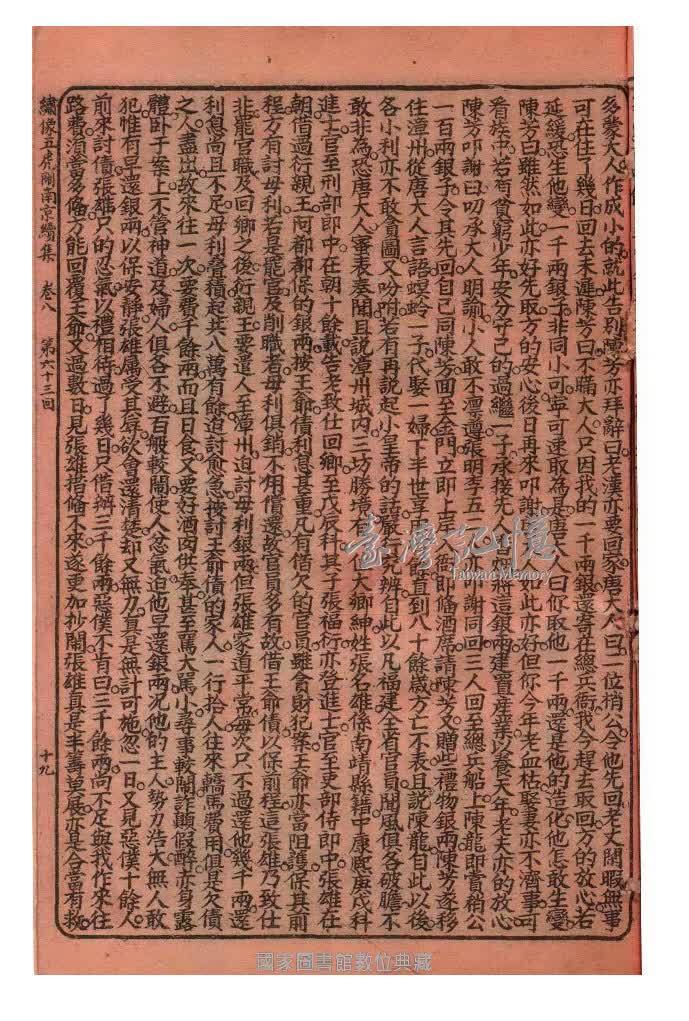 多蒙大人作成小的就此告別陳芳亦拜辭曰老漢亦要回家唐大人曰一位稍公令他先回老丈閒暇無事
可在住了幾日回去未遲陳芳曰不瞞大人只因我的一千兩銀還寄在總兵衙我今趕去取回方的放心若
延緩恐生他變一千兩銀子非同小可寧可速取為是唐大人曰你取他一千兩還是他的造化他怎敢生變
陳芳曰雖然如此亦好先取方的安心後日再來叩謝大人如此亦好但你今年老血枯娶妻亦不濟事可
看族中若有貧窮少年安分守己的過繼一子承接先人將這銀兩建置產業以養天年老夫亦的放心
陳芳叩謝曰叨承大人明諭小人敢不凜遵張明李五亦叩謝同回三人回至總兵船上陳龍即賞稍公
一百兩銀子令其先回自己同陳芳面至金門立即上岸入衙即備酒席請陳芳又贈些禮物銀兩陳芳遂移
住漳州從唐大人言語螟蛉一子代娶一婦下半世享直到八十餘歲方亡不表且說陳龍自此以後
各小利亦不敢貪圖又吩咐若有再說起小皇帝的話嚴究辨自此以凡福建全省官員聞風俱各破膽不
敢非為恐唐大人審表奏聞且說漳州城內三坊勝境有大鄉紳姓張名雄係南靖縣籍中康熙庚戌科
進士官至刑部郎中在朝十餘載告老致仕回鄉至戊辰科其子張福衍亦登進士官至吏部侍郎中張雄在
朝借過衍親王阿都都保的銀兩按王爺債利息甚重凡有借欠的官員雖貪財犯案王爺亦當阻護保其前
程方有討母利若是罷官及削職者母利俱銷不用償還故官員多有故借王爺債以保前程這張雄乃致仕
非罷官職及回鄉之後衍親王要遣人至漳州迫討母利銀兩但張雄家道平常每次只不過還他幾千兩還
利息尚且不足母利疊積起共八萬有餘迫討愈急按討王爺債的家人一行拾人往來轎馬費用俱是欠債
之人盡出故來往一次要費千餘兩而且日食又要好酒肉供奉甚至罵大罵小尋事較鬧詐顛假醉亦身露
體臥于案上不管神道及婦人俱各不避百般較鬧使人忿氣迫他早還銀兩況他的主人勢力浩大無人敢
犯惟有早還銀兩以保安靜張雄屢受其辱欲會還清楚却又無力真是無計可施忽一日又見惡僕十餘人
前來討債張雄只的忍氣以禮相待過了幾日只借辨三千餘兩惡僕不肯曰三千餘兩尚不足與我作來往
路費須當多備方能回覆王爺又過數日見張雄措備不來遂更加抄鬧張雄真是半籌莫展亦是合當有救
繡像五虎鬧南京續集 卷八 第六十三回 十九
臺灣記憶
Taiwan Memory
國家圖書館數位典藏